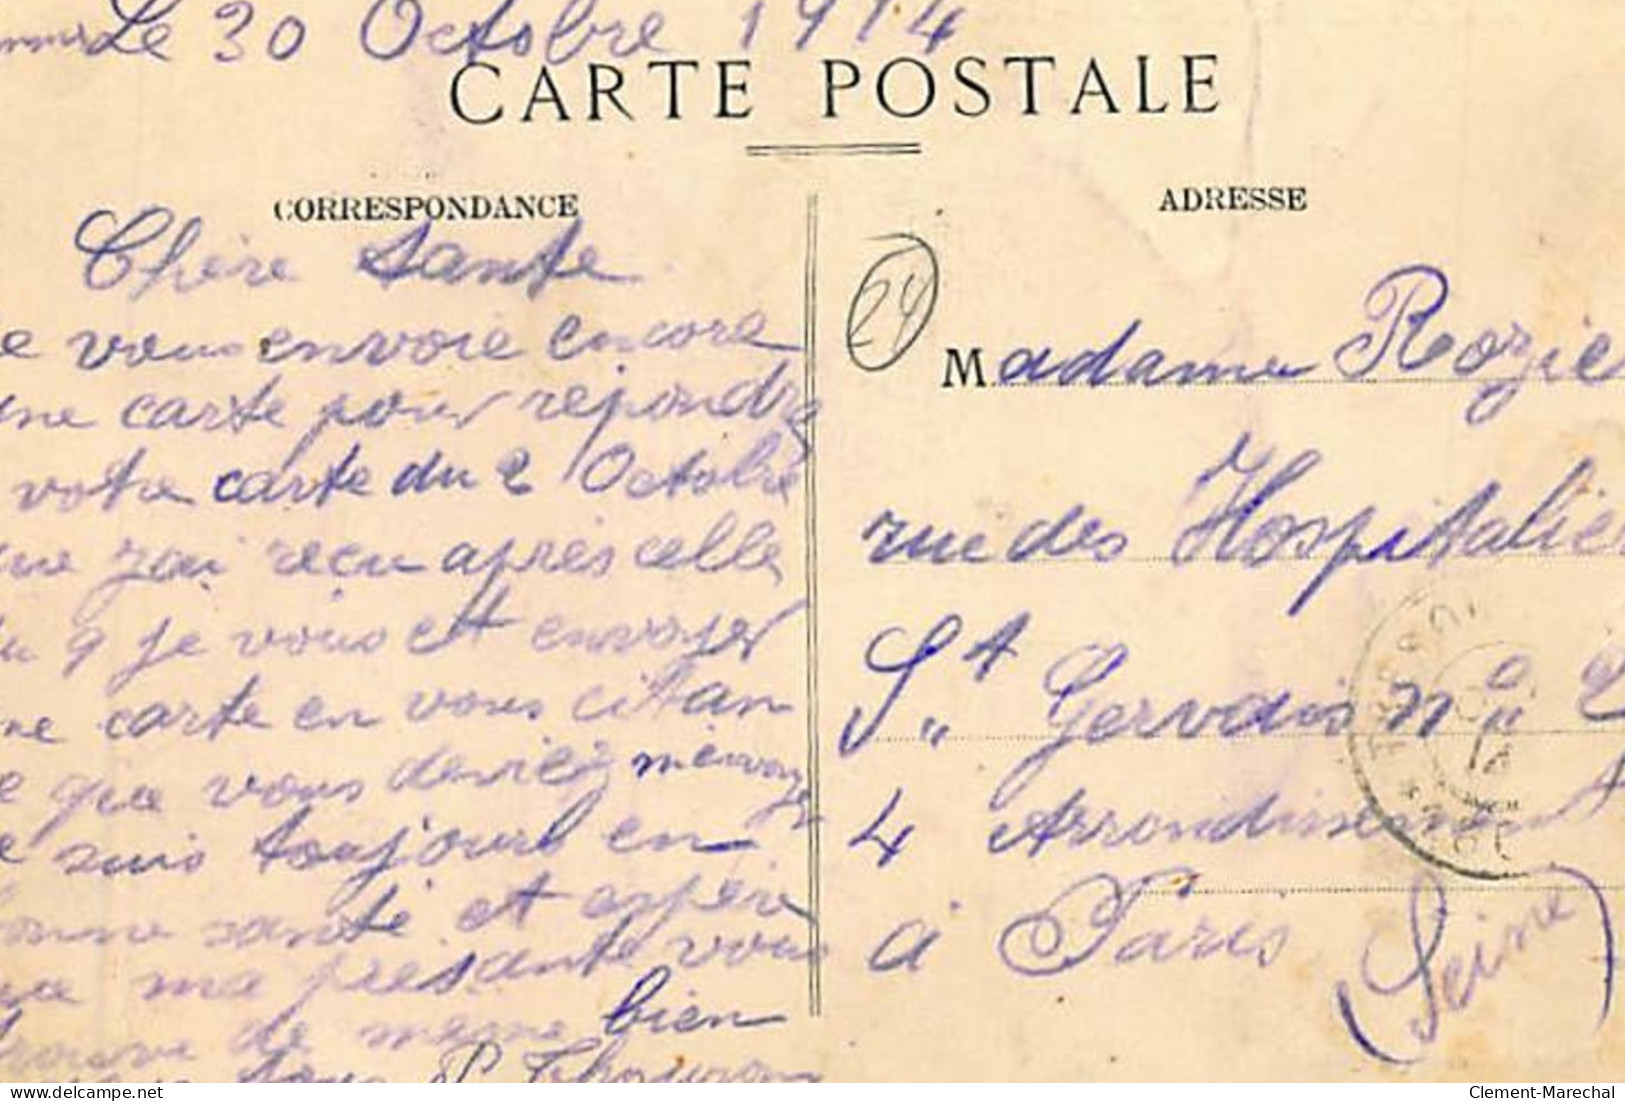 Le 30 Octobre 1914
CARTE POSTALE
CORRESPONDANCE
Chère tante
e vous envoie encore
une carte pour répondre
votre carte du 2 Octobre
que j'ai reçu après celle
du 9 je vous et envoyer
ne carte en vous citan
e que vous deviez m'envoye
e suis toujours en
bonne santé et espère
que ma présante vous
trouve de même bien
P Thouvron
ADRESSE
24
Madame Rozie
rue des Hospitalie
St Gervais n°
4 Arrondissement
à Paris
(Seine)
Clement-Marechal